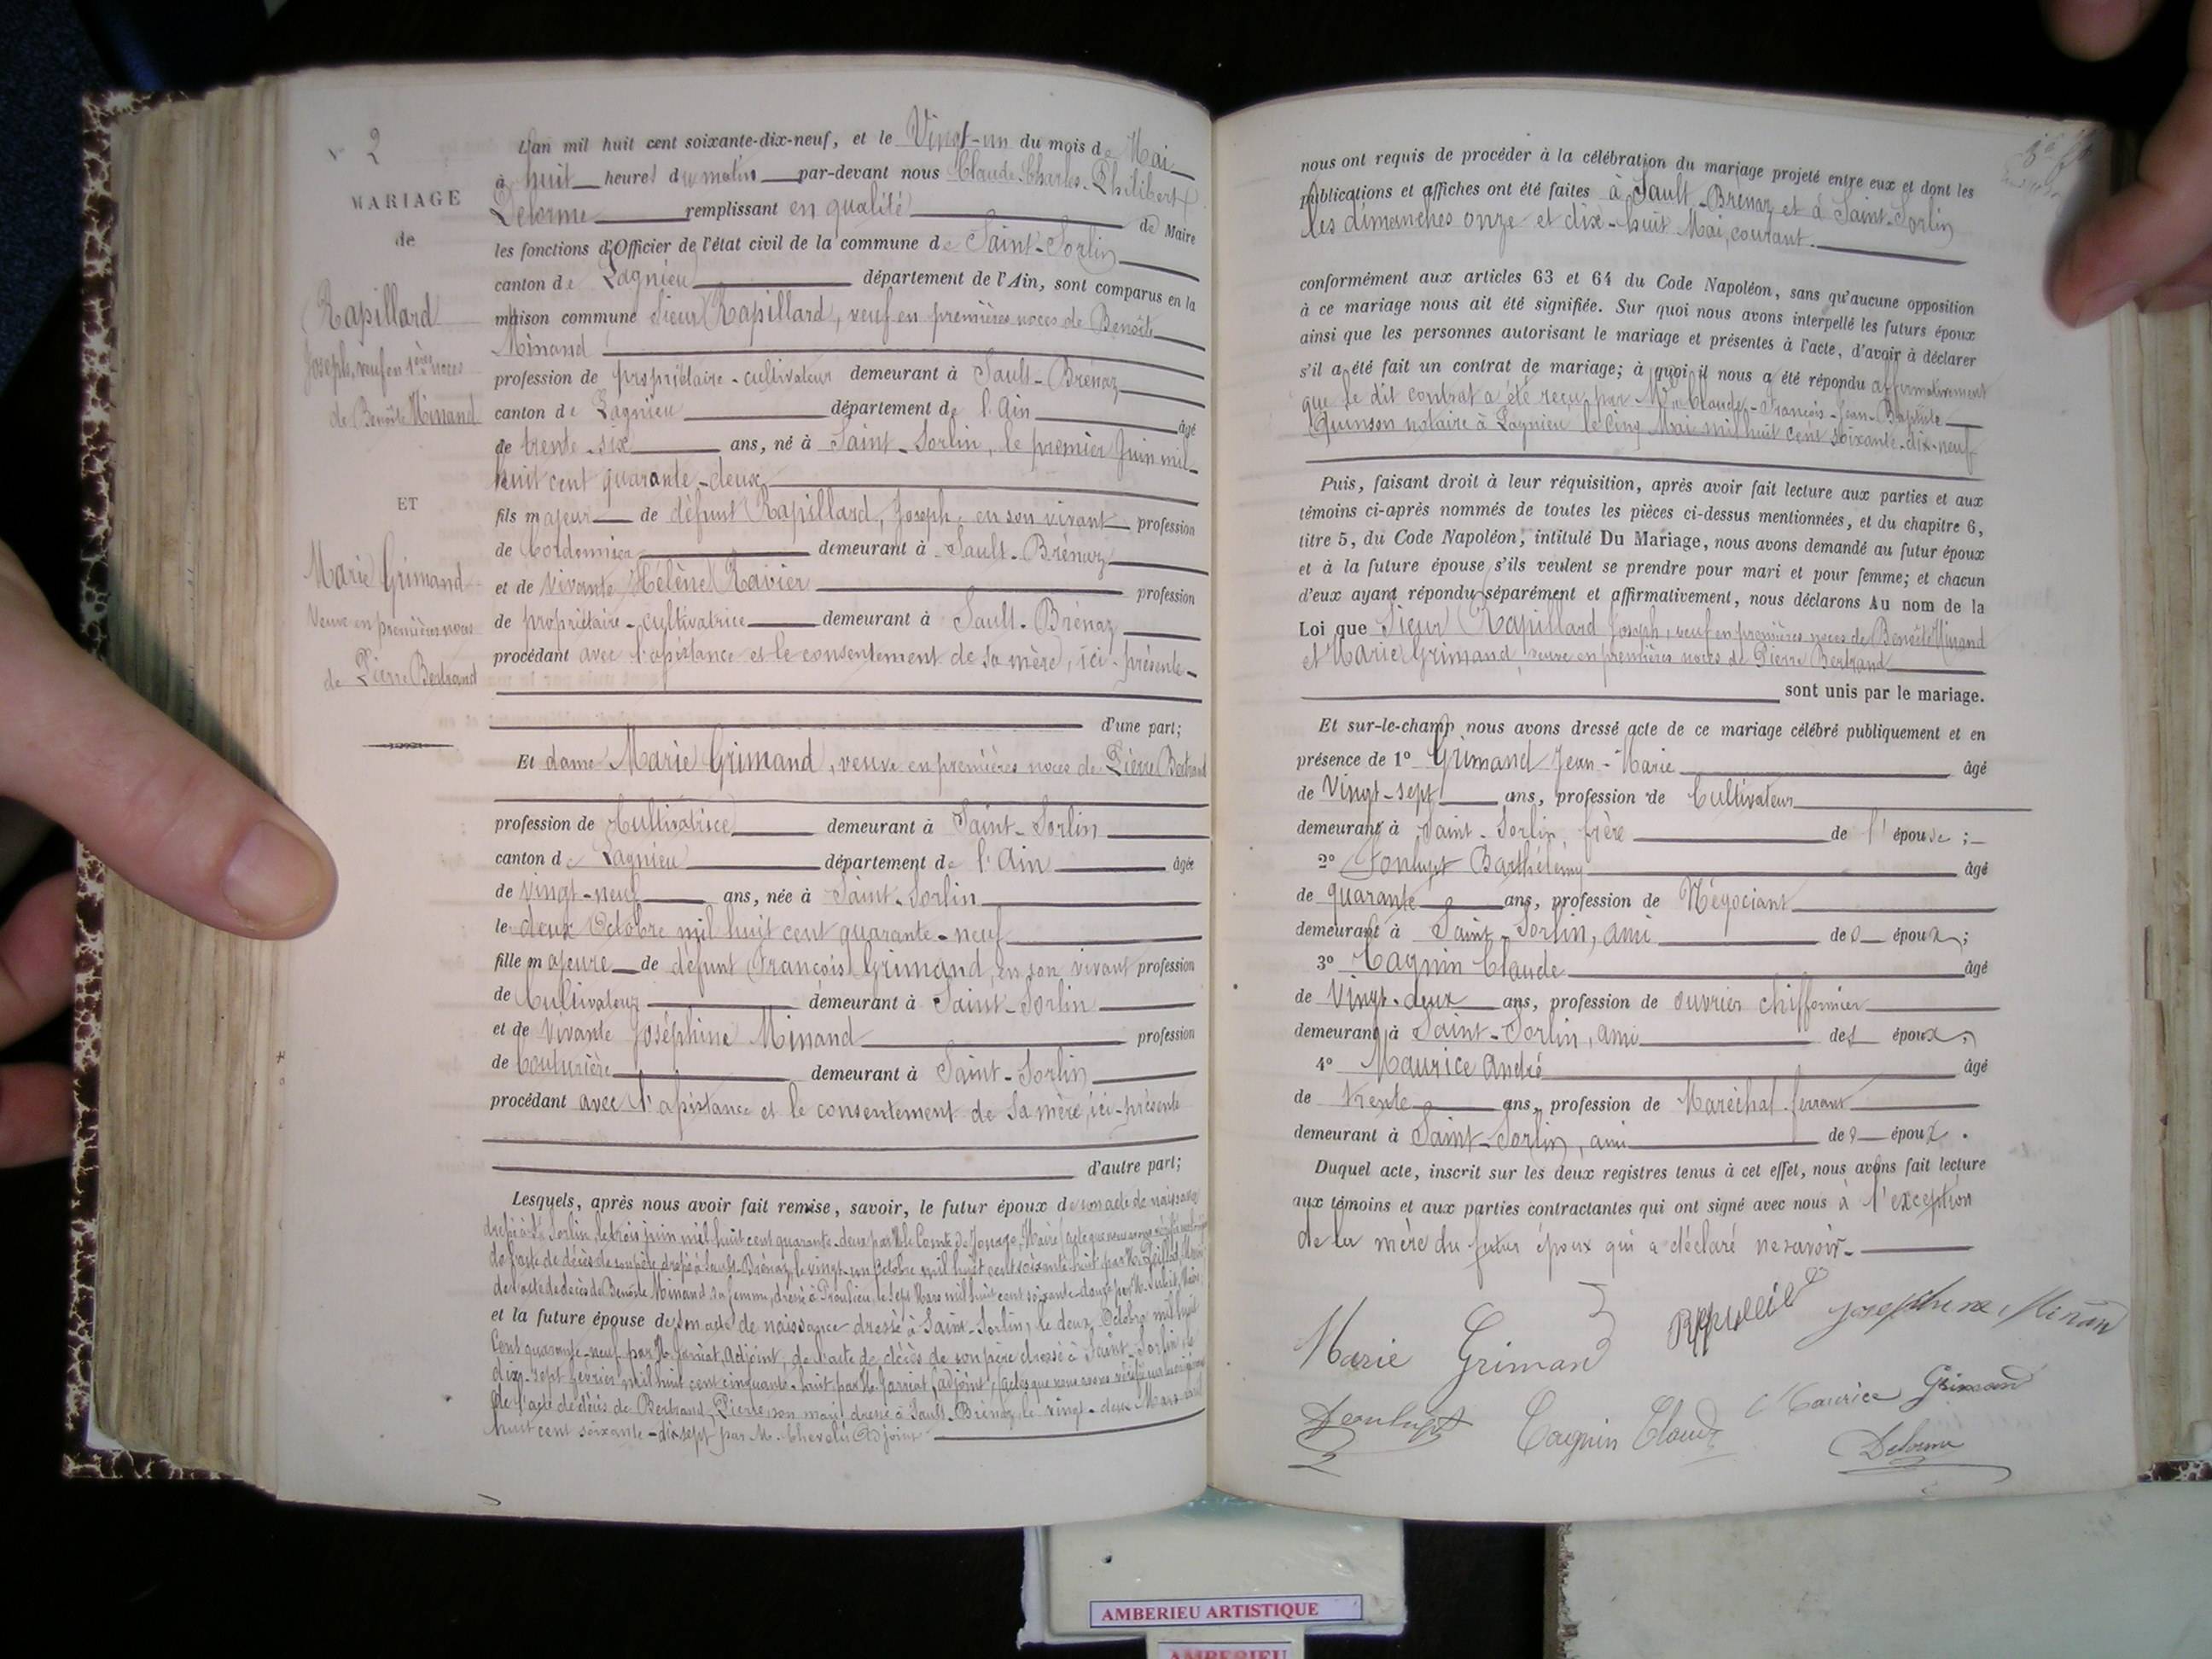 N° 2
MARIAGE
de
Rapillard
Joseph, veuf en 1ères noces
de Benoîte Minand
ET
Marie Grimand
Veuve en premières noces
de Pierre Bertrand
L'an mil huit cent soixante-dix-neuf, et le Vingt-un du mois de Mai
à huit heures du matin par-devant nous Claude-Charles-Philibert
Delorme remplissant en qualité de Maire
les fonctions d'Officier de l'état civil de la commune de Saint-Sorlin
canton de Lagnieu département de l'Ain, sont comparus en la
maison commune Sieur Rapillard, veuf en premières noces de Benoîte
Minand
profession de propriétaire-cultivateur demeurant à Sault-Brénaz
canton de Lagnieu département de l'Ain âgé
de trente-six ans, né à Saint-Sorlin, le premier Juin mil
huit cent quarante-deux
fils majeur de défunt Rapillard, Joseph, en son vivant profession
de Cordonnier demeurant à Sault-Brénaz
et de vivante Hélène Ravier profession
de propriétaire-cultivatrice demeurant à Sault-Brénaz
procédant avec l'assistance et le consentement de sa mère, ici-présente
d'une part;
Et dame Marie Grimand, veuve en premières noces de Pierre Bertrand
profession de Cultivatrice demeurant à Saint-Sorlin
canton de Lagnieu département de l'Ain âgée
de vingt-neuf ans, née à Saint-Sorlin
le deux Octobre mil huit cent quarante-neuf
fille majeure de défunt François Grimand, en son vivant profession
de Cultivateur demeurant à Saint-Sorlin
et de Vivante Joséphine Minand profession
de Couturière demeurant à Saint-Sorlin
procédant avec l'assistance et le consentement de sa mère, ici-présente
d'autre part;
Lesquels, après nous avoir fait remise, savoir, le futur époux de son acte de naissance
dressé à St Sorlin, le trois juin mil huit cent quarante-deux par M. le Comte de Maire
de l'acte de décès de son père, dressé à Sault-Brénaz, le vingt-un Octobre mil huit cent soixante-huit par M.
de l'acte de décès de Benoîte Minand sa femme, dressé à Proulieu, le sept Mars mil huit cent soixante-douze par M. Maire,
et la future épouse de son acte de naissance dressé à Saint-Sorlin, le deux Octobre mil huit
cent quarante-neuf par M. Jarriat, Adjoint, de l'acte de décès de son père dressé à Saint-Sorlin, le
dix-sept février mil huit cent cinquante-huit par M. Jarriat, adjoint, (actes que nous avons
de l'acte de décès de Bertrand Pierre, son mari dressé à Sault-Brénaz, le vingt-deux Mars mil
huit cent soixante-dix sept par M. Adjoint
nous ont requis de procéder à la célébration du mariage projeté entre eux et dont les
publications et affiches ont été faites à Sault-Brénaz et à Saint-Sorlin
les dimanches onze et dix-huit Mai, courant.
conformément aux articles 63 et 64 du Code Napoléon, sans qu'aucune opposition
à ce mariage nous ait été signifiée. Sur quoi nous avons interpellé les futurs époux
ainsi que les personnes autorisant le mariage et présentes à l'acte, d'avoir à déclarer
s'il a été fait un contrat de mariage; à quoi il nous a été répondu affirmativement
que le dit contrat a été reçu par Me Claude-François-Jean-Baptiste
Quinson notaire à Lagnieu le cinq Mai mil huit cent soixante-dix-neuf
Puis, faisant droit à leur réquisition, après avoir fait lecture aux parties et aux
témoins ci-après nommés de toutes les pièces ci-dessus mentionnées, et du chapitre 6,
titre 5, du Code Napoléon, intitulé Du Mariage, nous avons demandé au futur époux
et à la future épouse s'ils veulent se prendre pour mari et pour femme; et chacun
d'eux ayant répondu séparément et affirmativement, nous déclarons Au nom de la
Loi que Sieur Rapillard Joseph, veuf en premières noces de Benoîte Minand
et Marie Grimand veuve en premières noces de Pierre Bertrand
sont unis par le mariage.
Et sur-le-champ nous avons dressé acte de ce mariage célébré publiquement et en
présence de 1° Grimand Jean-Marie âgé
de Vingt-sept ans, profession de Cultivateur
demeurant à Saint-Sorlin, frère de l'épouse;
2° Fonlupt Barthélemy âgé
de quarante ans, profession de Négociant
demeurant à Saint-Sorlin, ami des époux;
3° Cagnin Claude âgé
de Vingt-deux ans, profession de ouvrier chiffonnier
demeurant à Saint-Sorlin, ami des époux;
4° Maurice André âgé
de trente ans, profession de Maréchal-ferrant
demeurant à Saint-Sorlin, ami des époux.
Duquel acte, inscrit sur les deux registres tenus à cet effet, nous avons fait lecture
aux témoins et aux parties contractantes qui ont signé avec nous à l'exception
de la mère du futur époux qui a déclaré ne savoir.
Marie Grimand Josephine Minan
Fonlupt Cagnin Claude Maurice Grimand
Delorme
AMBERIEU ARTISTIQUE
AMBERIEU